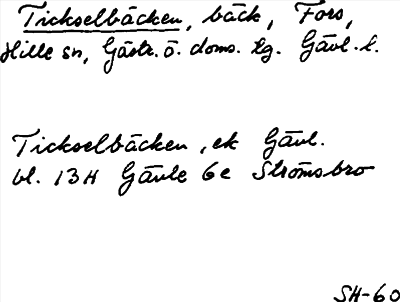 Tickselbäcken, bäck, Fors,
Hille sn, Gästr. ö. doms. lg. Gävl. l.
Tickselbäcken, ek Gävl.
bl. 13H Gävle 6e Strömsbro
SH-60